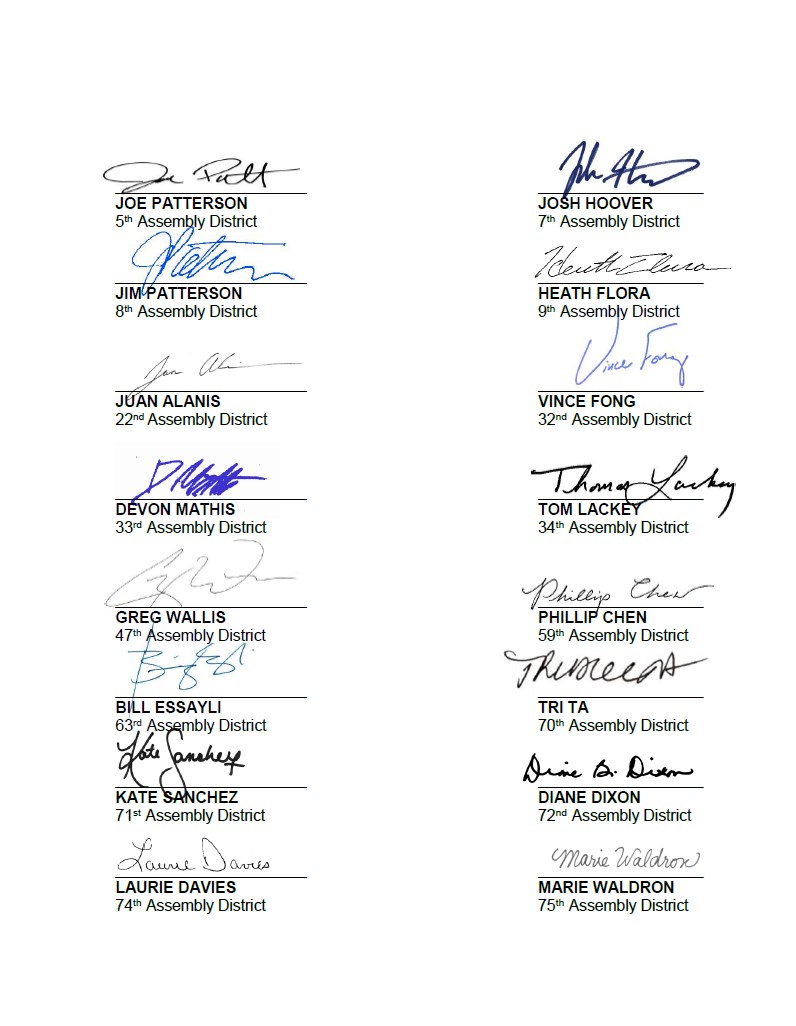 Joe Patt
JOE PATTERSON
5th Assembly District
JOSH HOOVER
7th Assembly District
JIM PATTERSON
8th Assembly District
Heath Flora
HEATH FLORA
9th Assembly District
JUAN ALANIS
22nd Assembly District
Vince Fong
VINCE FONG
32nd Assembly District
DEVON MATHIS
33rd Assembly District
Thomas Lackey
TOM LACKEY
34th Assembly District
GREG WALLIS
47th Assembly District
Phillip Chen
PHILLIP CHEN
59th Assembly District
BILL ESSAYLI
63rd Assembly District
TRI TA
70th Assembly District
Kate Sanchez
KATE SANCHEZ
71st Assembly District
Diane B. Dixon
DIANE DIXON
72nd Assembly District
Laurie Davies
LAURIE DAVIES
74th Assembly District
Marie Waldron
MARIE WALDRON
75th Assembly District